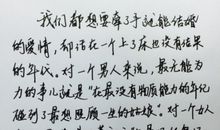 我们都想要牵了手就能结婚
的爱情，却活在一个上了床也没有结果
的年代。对一个男人来说，最无能为
力的事儿就是“在最没有物质能力的年代
碰到了最想照顾一生的姑娘”。对一个女人